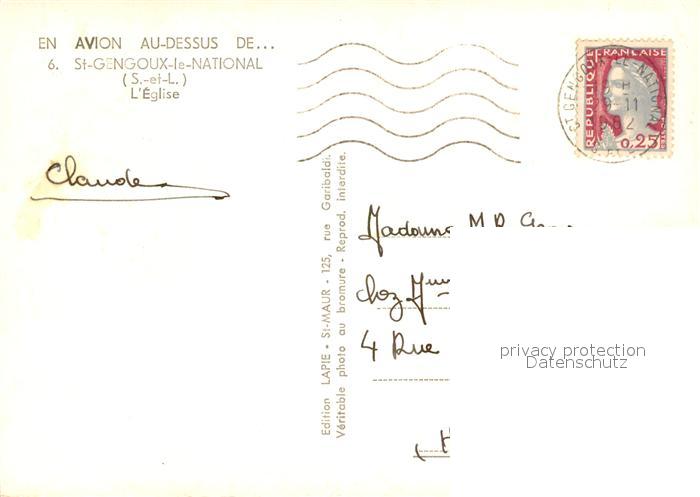 EN AVION AU-DESSUS DE...
6. St-GENGOUX-le-NATIONAL
(S.-et-L.)
L'Église
Claude
Edition LAPIE - St-MAUR - 125, rue Garibaldi.
Véritable photo au bromure - Reprod. interdite.
REPUBLIQUE FRANÇAISE
0,25
ST GENGOUX-LE-NATIONAL
Madame M.D.
chez Mme
4 Rue
privacy protection
Datenschutz